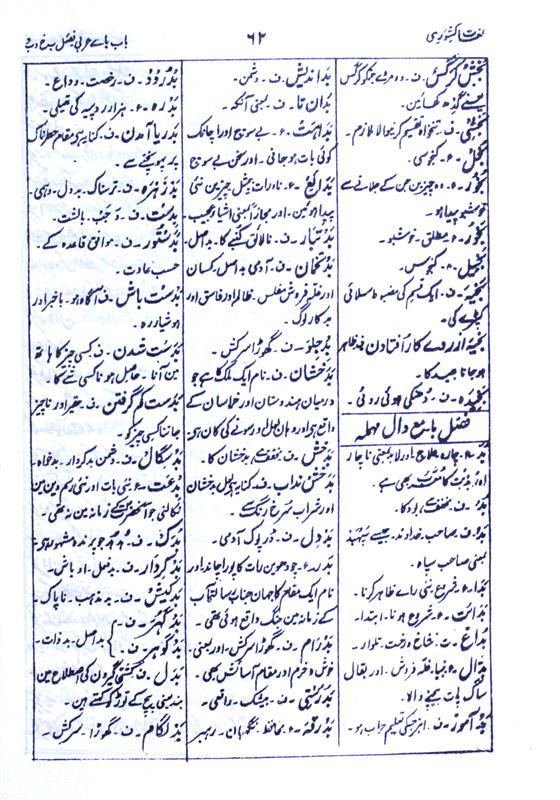 لغات کشوری
۶۲
باب بائے عربی فصل بدخ و بدو
بخش کرگس۔ ف۔ وہ مردے جنکو کرگس
یعنے گدھ کھاتے ہیں۔
بخشی۔ ف۔ تنخواہ تقسیم کرنیوالا ملازم۔
بخل۔ ع۔ کنجوسی۔
بخور۔ ع۔ وہ چیزیں جن کے جلانے سے
خوشبو پیدا ہو۔
بخور۔ ع۔ مطلق خوشبو۔
بخیل۔ ع۔ کنجوس۔
بخیہ۔ ف۔ ایک قسم کی مضبوط سلائی
کپڑے کی۔
بخیہ از روے کار افتادن۔ ف۔ ظاہر
ہو جانا بھید کا۔
بخیدہ۔ ف۔ دُھنکی ہوئی روئی۔
فصل با مع دال مہملہ
بد۔ ع۔ چارہ علاج اور لابد بمعنی ناچار
اور بدبت کا معرب بھی ہے۔
بد۔ ف۔ مخفف بود کا۔
بد۔ ف۔ صاحب خداوند جیسے سپہبد
بمعنی صاحب سپاہ۔
بدا۔ ع۔ شروع نئی رائے ظاہر کرنا۔
بدائت۔ ع۔ شروع ہونا۔ ابتدا۔
بداغ۔ ت۔ شاخ درخت۔ تلوار۔
بدال۔ ع۔ بنیا۔ غلہ فروش۔ اور بقال
ساگ پات بیچنے والا۔
بد آموز۔ ف۔ ابتر جسکی تعلیم خراب ہو۔
بد اندیش۔ ف۔ دشمن۔
بدان تا۔ ف۔ یعنی آنکہ۔
بداہت۔ ع۔ بے سوچ اور اچانک
کوئی بات ہو جانی۔ اور سخن بے سوچ
بدائع۔ ع۔ نادرات بیمثل چیزیں نئی
پیدا ہوئیں۔ اور مجازاً بمعنی اشیاء عجیب
بد تبار۔ ف۔ نالائق کنبے کا۔ بد اصل
بد تخمان۔ ف۔ آدمی بد اصل کسان
اور غلہ فروش مفلس۔ ظالم اور فاسق اور
بدکار لوگ۔
بد جلو۔ ف۔ گھوڑا سرکش۔
بدخشان۔ ف۔ نام ایک ملک کا ہے جو
درمیان ہندوستان اور خراسان کے
واقع ہے اور وہاں لعل اور سونے کی کان ہے
بدخش۔ ف۔ مخفف بدخشان کا۔
بدخش مذاب۔ ف۔ کنایہ ہے لعل بدخشان
اور شراب سرخ رنگ سے۔
بد دل۔ ف۔ ڈرپوک آدمی۔
بدر۔ ع۔ چودھویں رات کا پورا چاند اور
نام ایک مقام کا جہاں جناب رسالتمآب
کے زمانہ میں جنگ واقع ہوئی تھی۔
بد رام۔ ف۔ گھوڑا سرکش۔ اور بمعنی
خوش و خرم اور مقام آسائش بھی۔
بدرستی۔ ف۔ بیشک۔ واقعی۔
بدرقہ۔ ع۔ محافظ۔ نگہبان۔ رہبر
بدرود۔ ف۔ رخصت۔ وداع۔
بدرہ۔ ع۔ ہزار روپیہ کی تھیلی۔
بدریا آمدن۔ ف۔ کنایہ ہے مقام خطرناک
پر پہونچنے سے۔
بد زہرہ۔ ف۔ ترسناک۔ بد دل۔ وہمی۔
بدست۔ ف۔ وجب۔ بالشت۔
بدستور۔ ف۔ موافق قاعدہ کے۔
حسب عادت۔
بدست باش۔ ف۔ آگاہ ہو۔ باخبر اور
ہوشیار رہ۔
بدست شدن۔ ف۔ کسی چیز کا ہاتھ
میں آنا۔ حاصل ہونا کسی شے کا۔
بدست کم گرفتن۔ ف۔ حقیر اور ناچیز
جاننا کسی چیز کو۔
بد سگال۔ ف۔ دشمن۔ بدکردار۔ بدخواہ۔
بدعت۔ ع۔ نئی بات اور نئی رسم دین میں
نکالنی جو آنحضرت کے زمانہ میں نہ تھی۔
بدک۔ ف۔ ہدہد جو پرندہ مشہور ہے۔
بد کردار۔ ف۔ بدفعل۔ اوباش۔
بد کیش۔ ف۔ بد مذہب۔ ناپاک۔
بد گہر۔ ف۔ م
بد گوہر۔ ف۔ بد اصل۔ بد ذات۔
بدل۔ ف۔ کشتی گیروں کی اصطلاح میں
بند یعنی پیچ کے توڑ کو کہتے ہیں۔
بد لگام۔ ف۔ گھوڑا۔ سرکش۔